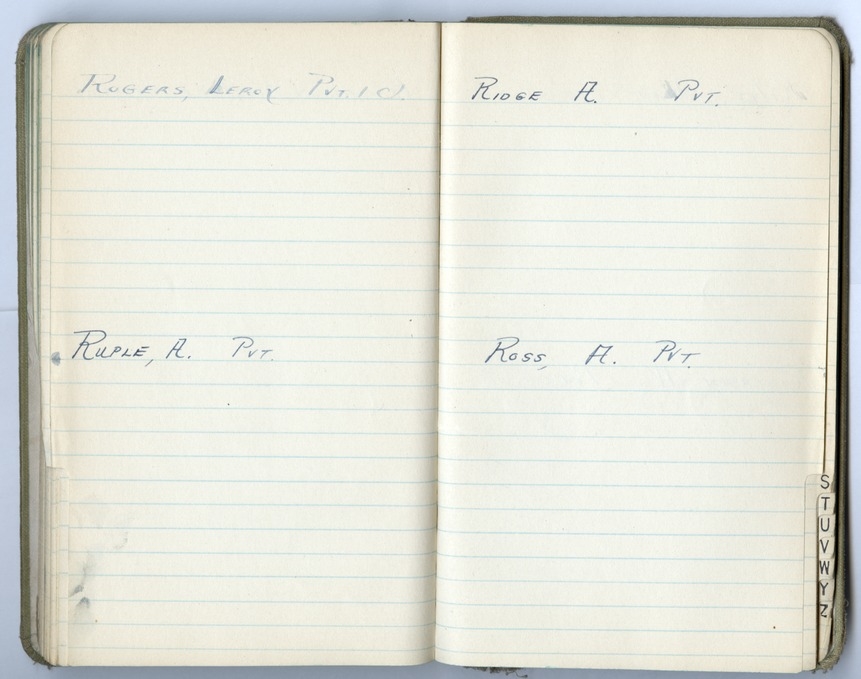 ROGERS, LEROY PVT. 1 Cl.
RUPLE, A. PVT.
RIDGE A. PVT.
ROSS, A. PVT.
S
T
U
V
W
Y
Z